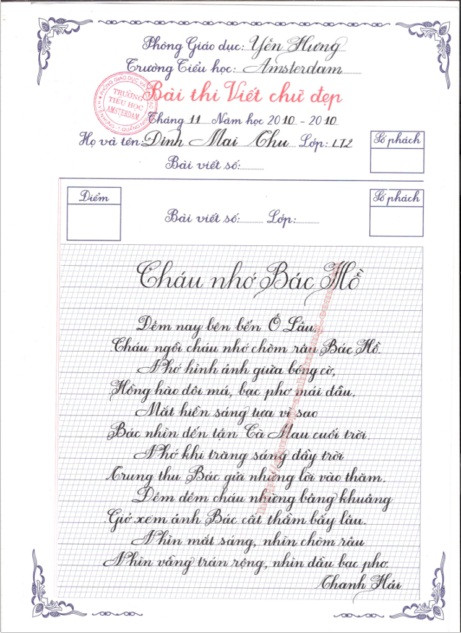 Phòng Giáo dục: Yên Hưng
Trường Tiểu học: Amsterdam
Bài thi Viết chữ đẹp
TRƯỜNG
TIỂU HỌC
AMSTERDAM
Tháng 11 Năm học 2010 - 2010
Họ và tên: Đinh Mai Chu Lớp: LT2
Số phách
Bài viết số:
Điểm
Số phách
Bài viết số: Lớp:
Cháu nhớ Bác Hồ
Đêm nay bên bến Ô Lâu,
Cháu ngồi cháu nhớ chòm râu Bác Hồ.
Nhớ hình ảnh giữa bóng cờ,
Hồng hào đôi má, bạc phơ mái đầu.
Mắt hiền sáng tựa vì sao
Bác nhìn đến tận Cà Mau cuối trời.
Nhớ khi trăng sáng đầy trời
Trung thu Bác gửi những lời vào thăm.
Đêm đêm cháu những bâng khuâng
Giở xem ảnh Bác cất thầm bấy lâu.
Nhìn mắt sáng, nhìn chòm râu
Nhìn vầng trán rộng, nhìn đầu bạc phơ.
Thanh Hải